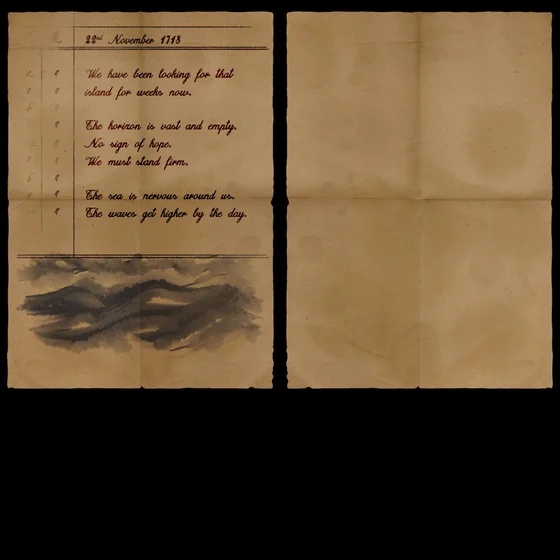 22nd November 1718
We have been looking for that
island for weeks now.
The horizon is vast and empty.
No sign of hope.
We must stand firm.
The sea is nervous around us.
The waves get higher by the day.